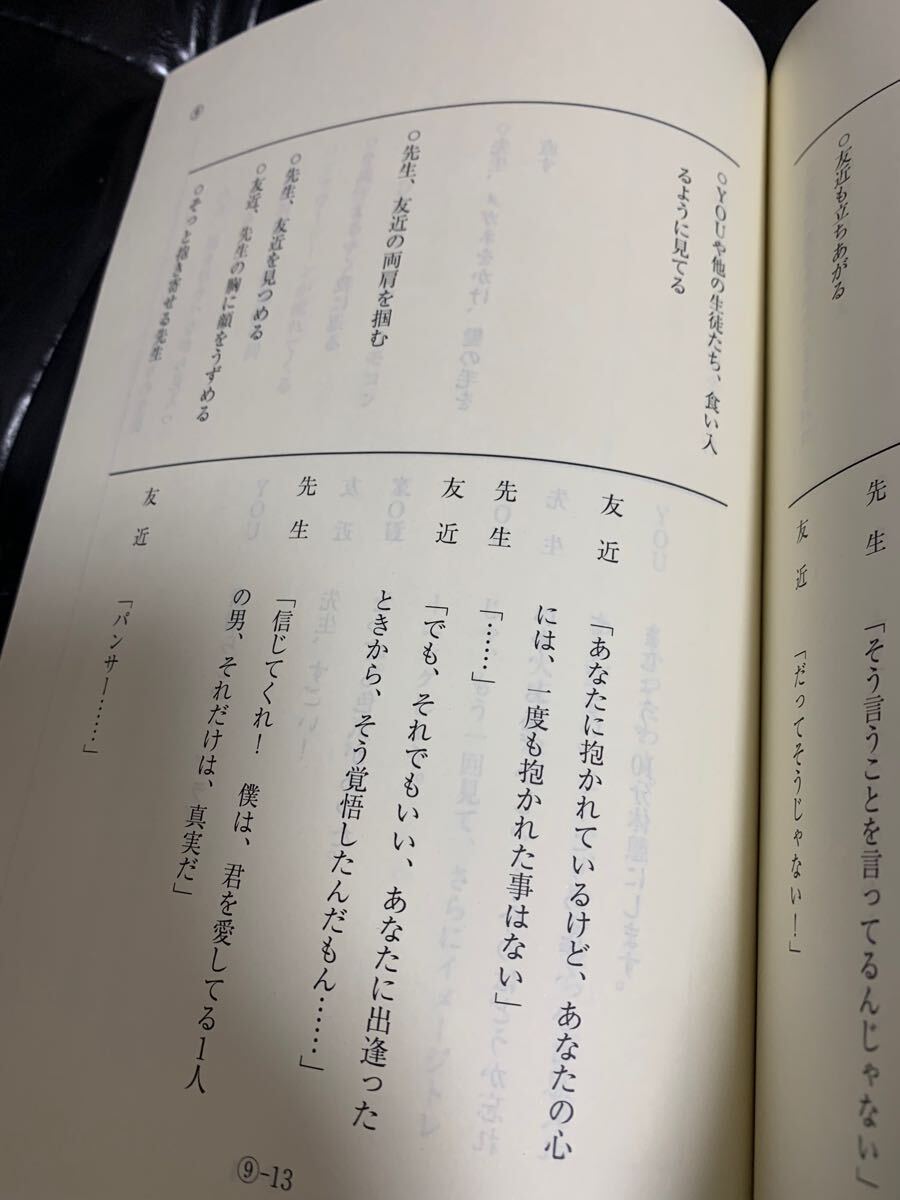 ○友近も立ちあがる
先生
「そう言うことを言ってるんじゃない」
友近
「だってそうじゃない!」
○YOUや他の生徒たち、食い入
るように見てる
○先生、友近の両肩を掴む
○先生、友近を見つめる
○友近、先生の胸に顔をうずめる
○そっと抱き寄せる先生
友近
「あなたに抱かれているけど、あなたの心
には、一度も抱かれた事はない」
先生
「……」
友近
「でも、それでもいい、あなたに出逢った
ときから、そう覚悟したんだもん……」
先生
「信じてくれ!　僕は、君を愛してる1人
の男、それだけは、真実だ」
友近
「パンサー……」
⑨-13